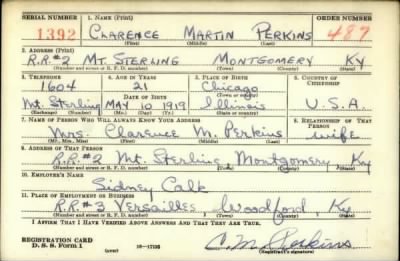 SERIAL NUMBER 1. NAME (Print) ORDER NUMBER
1392 CLARENCE MARTIN PERKINS 487
(First) (Middle) (Last)
2. ADDRESS (Print)
R.R #2 MT. STERLING MONTGOMERY KY
(Number and street or R. F. D. number) (Town) (County) (State)
3. TELEPHONE 4. AGE IN YEARS 5. PLACE OF BIRTH 6. COUNTRY OF CITIZENSHIP
1604 21 Chicago
DATE OF BIRTH (Town or county)
Mt. Sterling MAY 10 1919 Illinois U.S.A.
(Exchange) (Number) (Mo.) (Day) (Yr.) (State or country)
7. NAME OF PERSON WHO WILL ALWAYS KNOW YOUR ADDRESS 8. RELATIONSHIP OF THAT PERSON
Mrs. Clarence M. Perkins wife
(Mr., Mrs., Miss) (First) (Middle) (Last)
9. ADDRESS OF THAT PERSON
R.R. #2 Mt. Sterling, Montgomery Ky
(Number and street or R. F. D. number) (Town) (County) (State)
10. EMPLOYER'S NAME
Sidney Calk
11. PLACE OF EMPLOYMENT OR BUSINESS
R.R #3 Versailles, Woodford, Ky
(Number and street or R. F. D. number) (Town) (County) (State)
I AFFIRM THAT I HAVE VERIFIED ABOVE ANSWERS AND THAT THEY ARE TRUE.
REGISTRATION CARD
D. S. S. Form 1 (over) 16—17105 C. M. Perkins
(Registrant's signature)